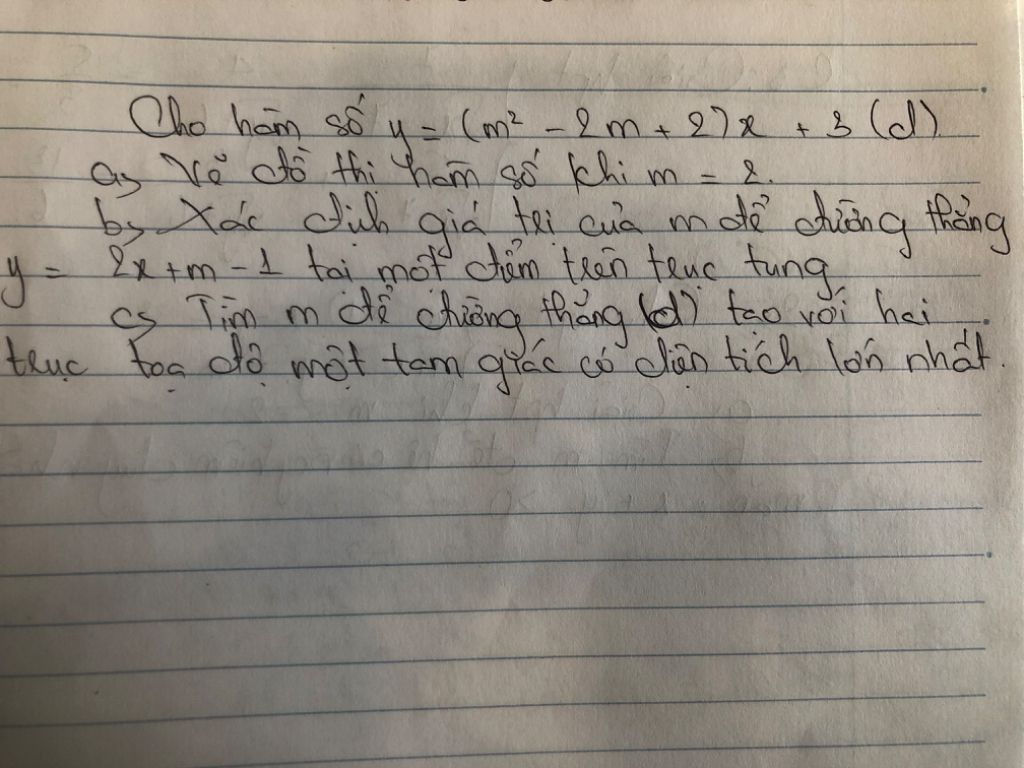 Cho hàm số y = (m² - 2m + 2)x + 3 (d)
a, Vẽ đồ thị hàm số khi m = 2.
b, Xác định giá trị của m để đường thẳng
y = 2x + m - 1 tại một điểm trên trục tung
c, Tìm m để đường thẳng (d) tạo với hai
trục toạ độ một tam giác có diện tích lớn nhất.